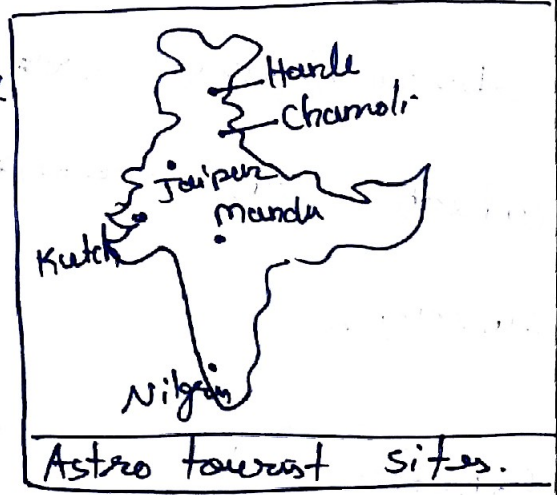 Hanle
Chamoli
Jaipur
Mandu
Kutch
Nilgiri
Astro tourist sites.